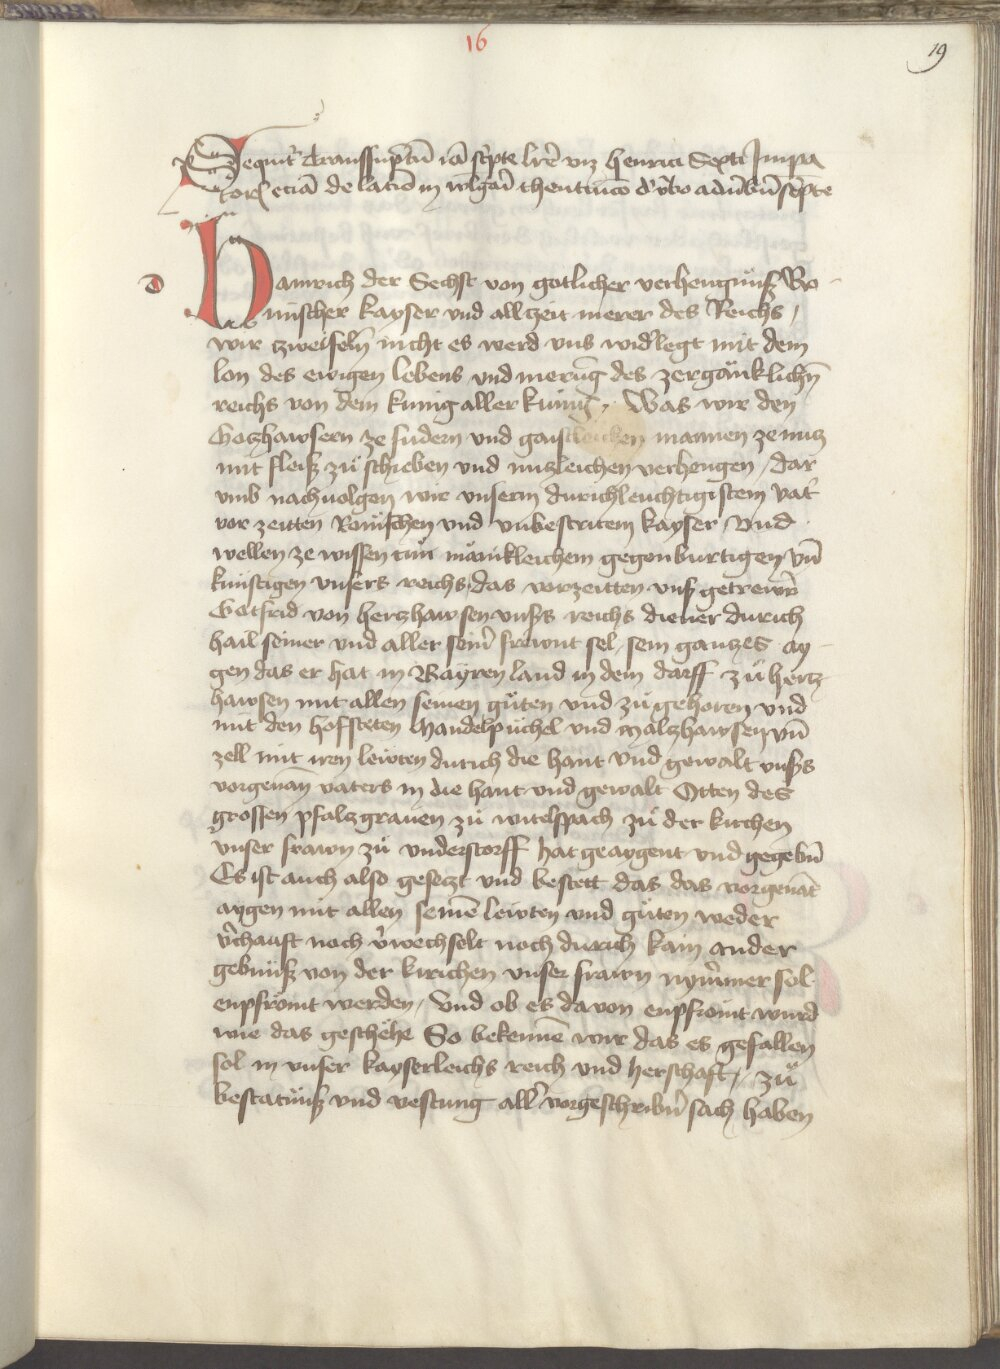 16
19
Sequit͛ transsu͛ptū iā sc͛pte lr̄e viz henrici Sexti Impa
tor͛ eciā de latīo in wlgar̄i theutūico v͛bo ad v͛bū sc͛pte
a
Hainrich der Sechst von gotlicher verhengnüß Ro-
mischer kayser vnd allczeit merer des Reichs /
wir zweifeln̄ nicht es werd vns wid͛legt mit dem
lon des ewigen lebens vnd merūg des zergäncklichn̄
reichs von dem kunig aller kunig, Was wir den
Gotzhawsern ze fudern vnd gaistleichen mannen ze nutz
mit fleiß zü schieben vnd nutzleichen verhengen, dar
vmb nachuolgen wir vnserm durichleuchtigistem vat͛
vor zeitten Romischen vnd vnbestritem kayser, Vnd
wellen ze wissen tün mänikleichem gegenburtigen vn̄
kunftigen vnsers reichs, das vorzeitten vnß getrewr͛
Gotfrid von hertzhawsen vnßs reichs diener durich
hail seiner vnd aller sein͛ frewnt sel, sein gantzes ay-
gen das er hat in Bayren land in dem darff zü hertz
hawsen mit allen seinen güten vnd zü gehoren vnd
mit den hofsteten Mandelpüchel vnd Malzhawsen vn̄
zell mit iren lewten durich die hant vnd gewalt vnßs
vorgenan̄ vaters in die hant vnd gewalt Otten des
grossen pfaltzgrauen zü witelspach zü der kirchen
vnser frawn zü vnderstorff hat geaygent vnd gegebn̄
Es ist auch also gesetzt vnd bestett das das vorgenāt
aygen mit allen seinē lewten vnd güten weder
v͛chauft noch v͛wechselt noch durich kain ander
gebnüß von der kirichen vnser frawn nym̄mer sol
enpfrömt werden, Vnd ob es dauon enpfrömt wurd
wie das geschëhe So bekennē wir das es gefallen
sol in vnser kayserleichs reich vnd herschaft, zü
bestatnüß vnd vestung all͛ vorgeschribn̄ sach haben